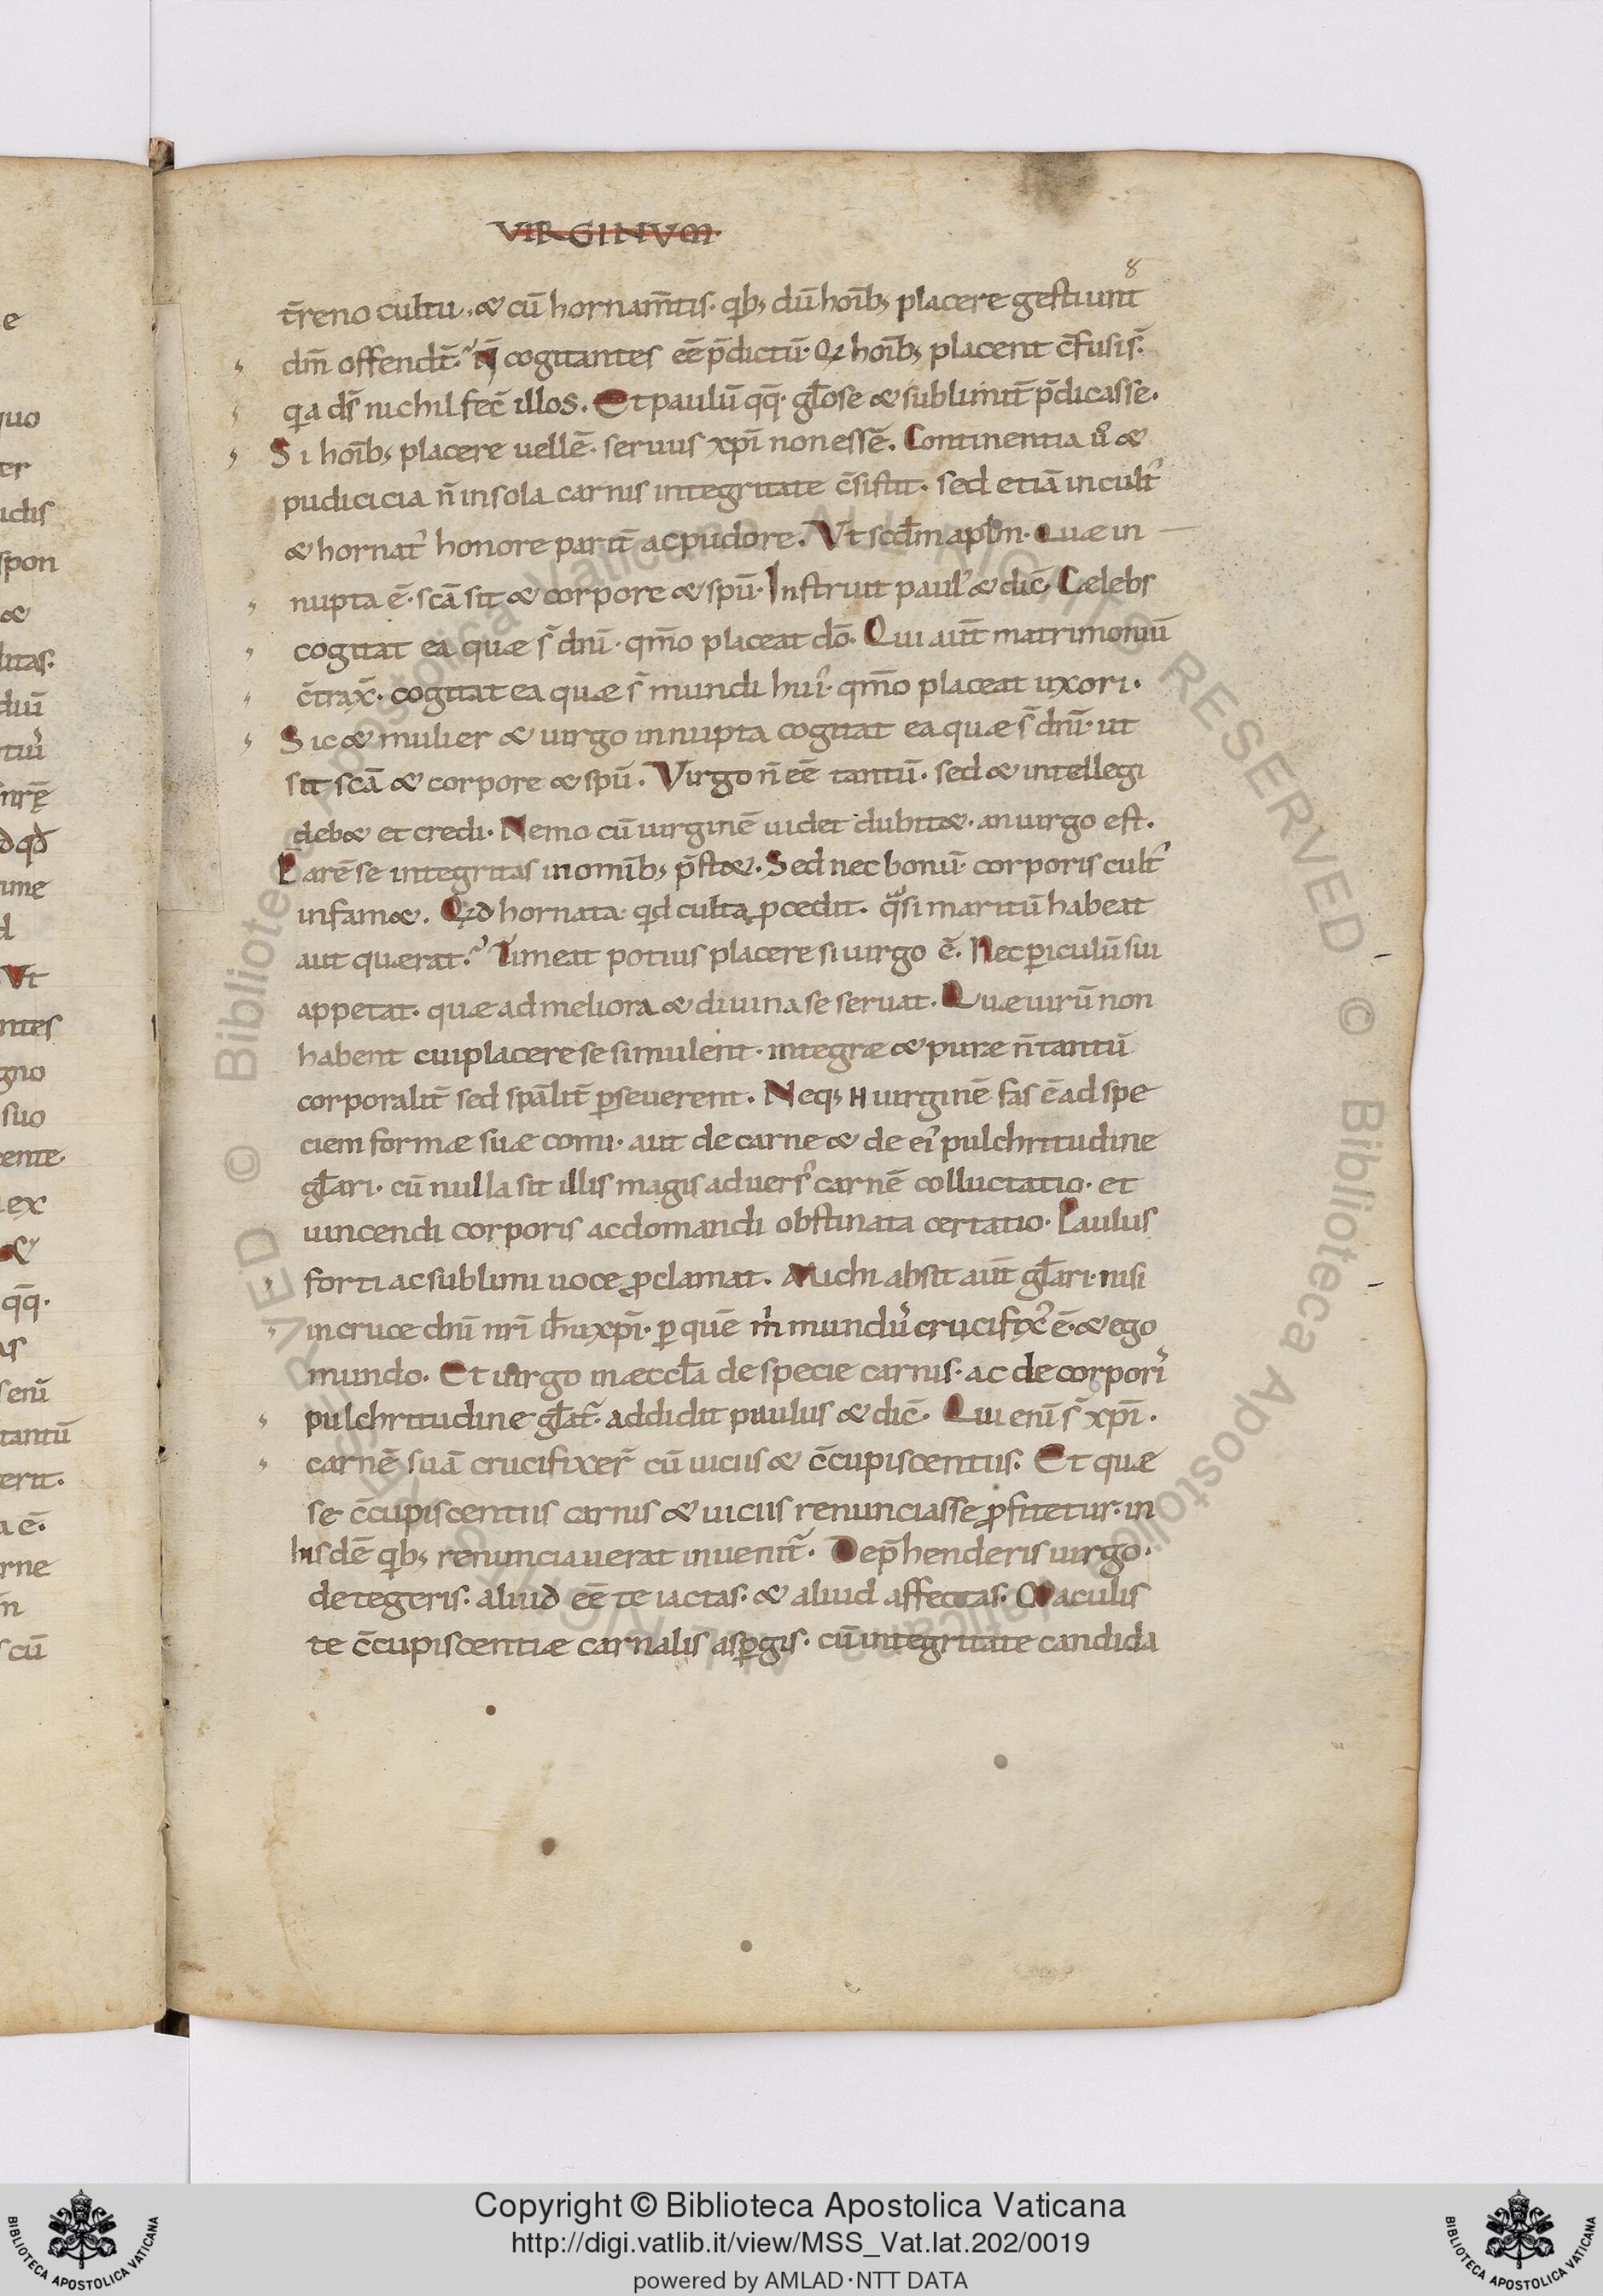 VIRGINVM
8
t̄reno cultu. & cū hornam̄tis. qib; dū hoīb; placere gestiunt
dm̄ offendt̄. N̄ cogitantes eē p̄dictū. Qi hoīb; placent c̄fusis̄.
qia ds̄ nichil fec̄ illos. Et paulū qq̄. gl̄ose & sublimit̄ p̄dicasse.
Si hoīb; placere uellē. seruus xpī non essē. Continentia ů &
pudicicia n̄ in sola carnis integritate c̄sistit. sed etiā in cult᾿
& hornat᾿ honore parit̄ ac pudore. Vt scd̄m aplm̄. Quæ in
nupta ē. scā sit & corpore & spū. Instruit paul᾿ & dic̄. Cælebs
cogitat ea quæ s̄ dnī. qm̄o placeat dō. Qui aut̄ matrimoniū
c̄trax̄. cogitat ea quæ s̄ mundi hui᾿. qm̄o placeat uxori.
Sic & mulier & uirgo innupta cogitat ea quæ s̄ dnī. ut
sit scā & corpore & spū. Virgo n̄ eē tantū. sed & intellegi
deb& et credi. Nemo cū uirginē uidet dubit&. an uirgo est.
Parē se integritas in omīb; p̄st&. Sed nec bonū corporis cult᾿
infam&. Qid hornata. qid culta pcedit. qasi maritū habeat
aut quærat.᾿ Timeat potius placere si uirgo ē. Nec periculū sui
appetat. quæ ad meliora & diuina se seruat. Quæ uirū non
habent cui placere se simulent. integræ & puræ n̄ tantū
corporalit̄ sed spāl̄it̄ pseuerent. Neq; H uirginē fas ē ad spe
ciem formæ suæ comi. aut de carne & de ei᾿ pulchritudine
gl̄ari. cū nulla sit illis magis aduers᾿ carnē colluctatio. et
uincendi corporis ac domandi obstinata certatio. Paulus
forti ac sublimi uoce pclamat. Michi absit aut̄ gl̄ari. nisi
in cruce dnī nrī ih̄u xpī. p quē m̊ mund᾿ crucifix᾿ ē. & ego
mundo. Et uirgo in æccl̄a de specie carnis. ac de corpori᾿
pulchritudine gl̄at᾿. addidit paulus & dic̄. Qui enī s̄ xpī.
carnē suā crucifixer̄ cū uiciis & c̄cupiscentiis. Et quæ
se c̄cupiscentiis carnis & uiciis renunciasse pfitetur. in
hisdē qib; renunciauerat inuenit᾿. Dep̄henderis uirgo.
detegeris. aliud eē te iactas. & aliud affectas. Maculis
te c̄cupiscentiæ carnalis aspgis. cū integritate candida
Copyright © Biblioteca Apostolica Vaticana
http://digi.vatlib.it/view/MSS_Vat.lat.202/0019
powered by AMLAD·NTT DATA